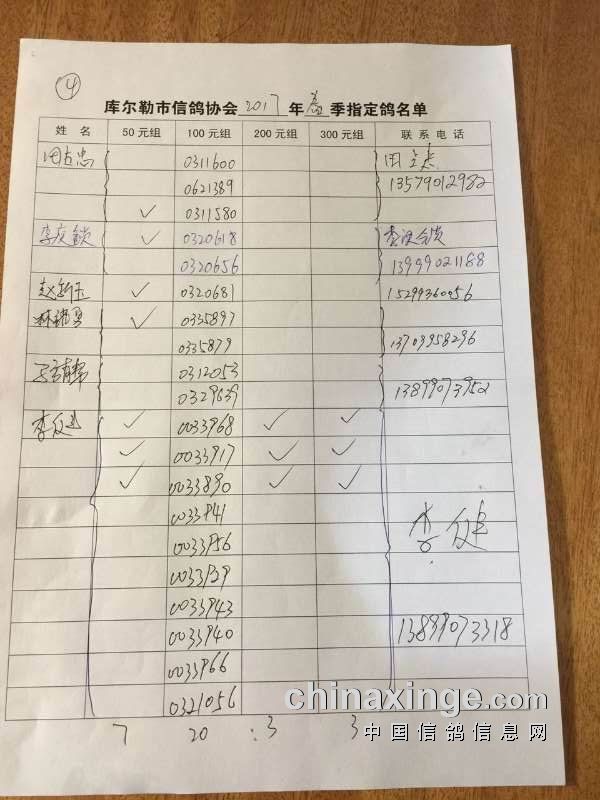 ④
库尔勒市信鸽协会 2017 年 春 季指定鸽名单
姓 名 50元组 100元组 200元组 300元组 联 系 电 话
0311600
0621389 13579012982
✓ 0311580
李庆锁 ✓ 0320618
0320656 13999021188
赵新玉 ✓ 0320681 15299360056
林 ✓ 0335897
0335879 13709958296
0312053
0329639 13899073952
李健 ✓ 0033968 ✓ ✓
✓ 0033917 ✓ ✓
✓ 0033890 ✓ ✓
0033941
0033956 李健
0033929
0033943
0033940 13899073318
0033966
0321056
7 20 3 3
chinaxinge.com
中国信鸽信息网